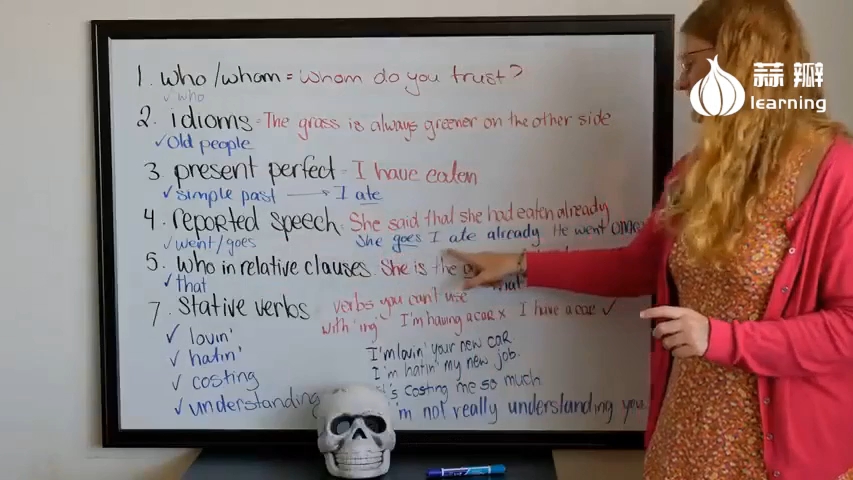 1. who/whom = Whom do you trust?
✓ who
2. idioms = The grass is always greener on the other side
✓ Old people
3 present perfect - I have eaten
✓ simple past → I ate
4. reported speech = She said that she had eaten already
✓ went/goes She goes I ate already He went
5. who in relative clauses. She is the
✓ that
7. stative verbs verbs you can't use
with 'ing' I'm having a car x I have a car ✓
✓ lovin' I'm lovin' your new car
✓ hatin' I'm hatin' my new job.
✓ costing costing me so much.
✓ understanding I'm not really understanding you
蒜瓣
learning